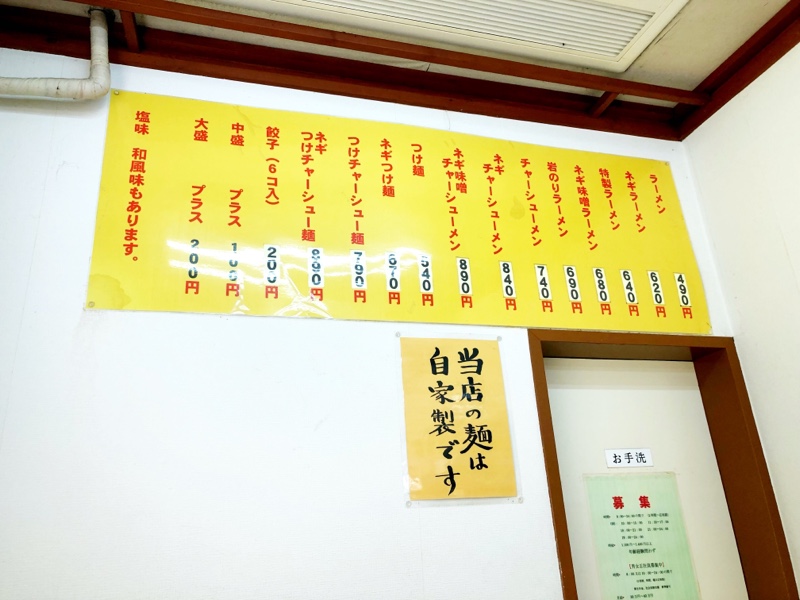 ラーメン 490円
ネギラーメン 620円
特製ラーメン 640円
ネギ味噌ラーメン 680円
岩のりラーメン 690円
チャーシューメン 740円
ネギ
チャーシューメン 840円
ネギ味噌
チャーシューメン 890円
つけ麺 540円
ネギつけ麺 670円
つけチャーシュー麺 790円
ネギ
つけチャーシュー麺 890円
餃子(6コ入) 200円
中盛 プラス 100円
大盛 プラス 200円
塩味 和風味もあります。
当店の麺は
自家製です
お手洗
募集